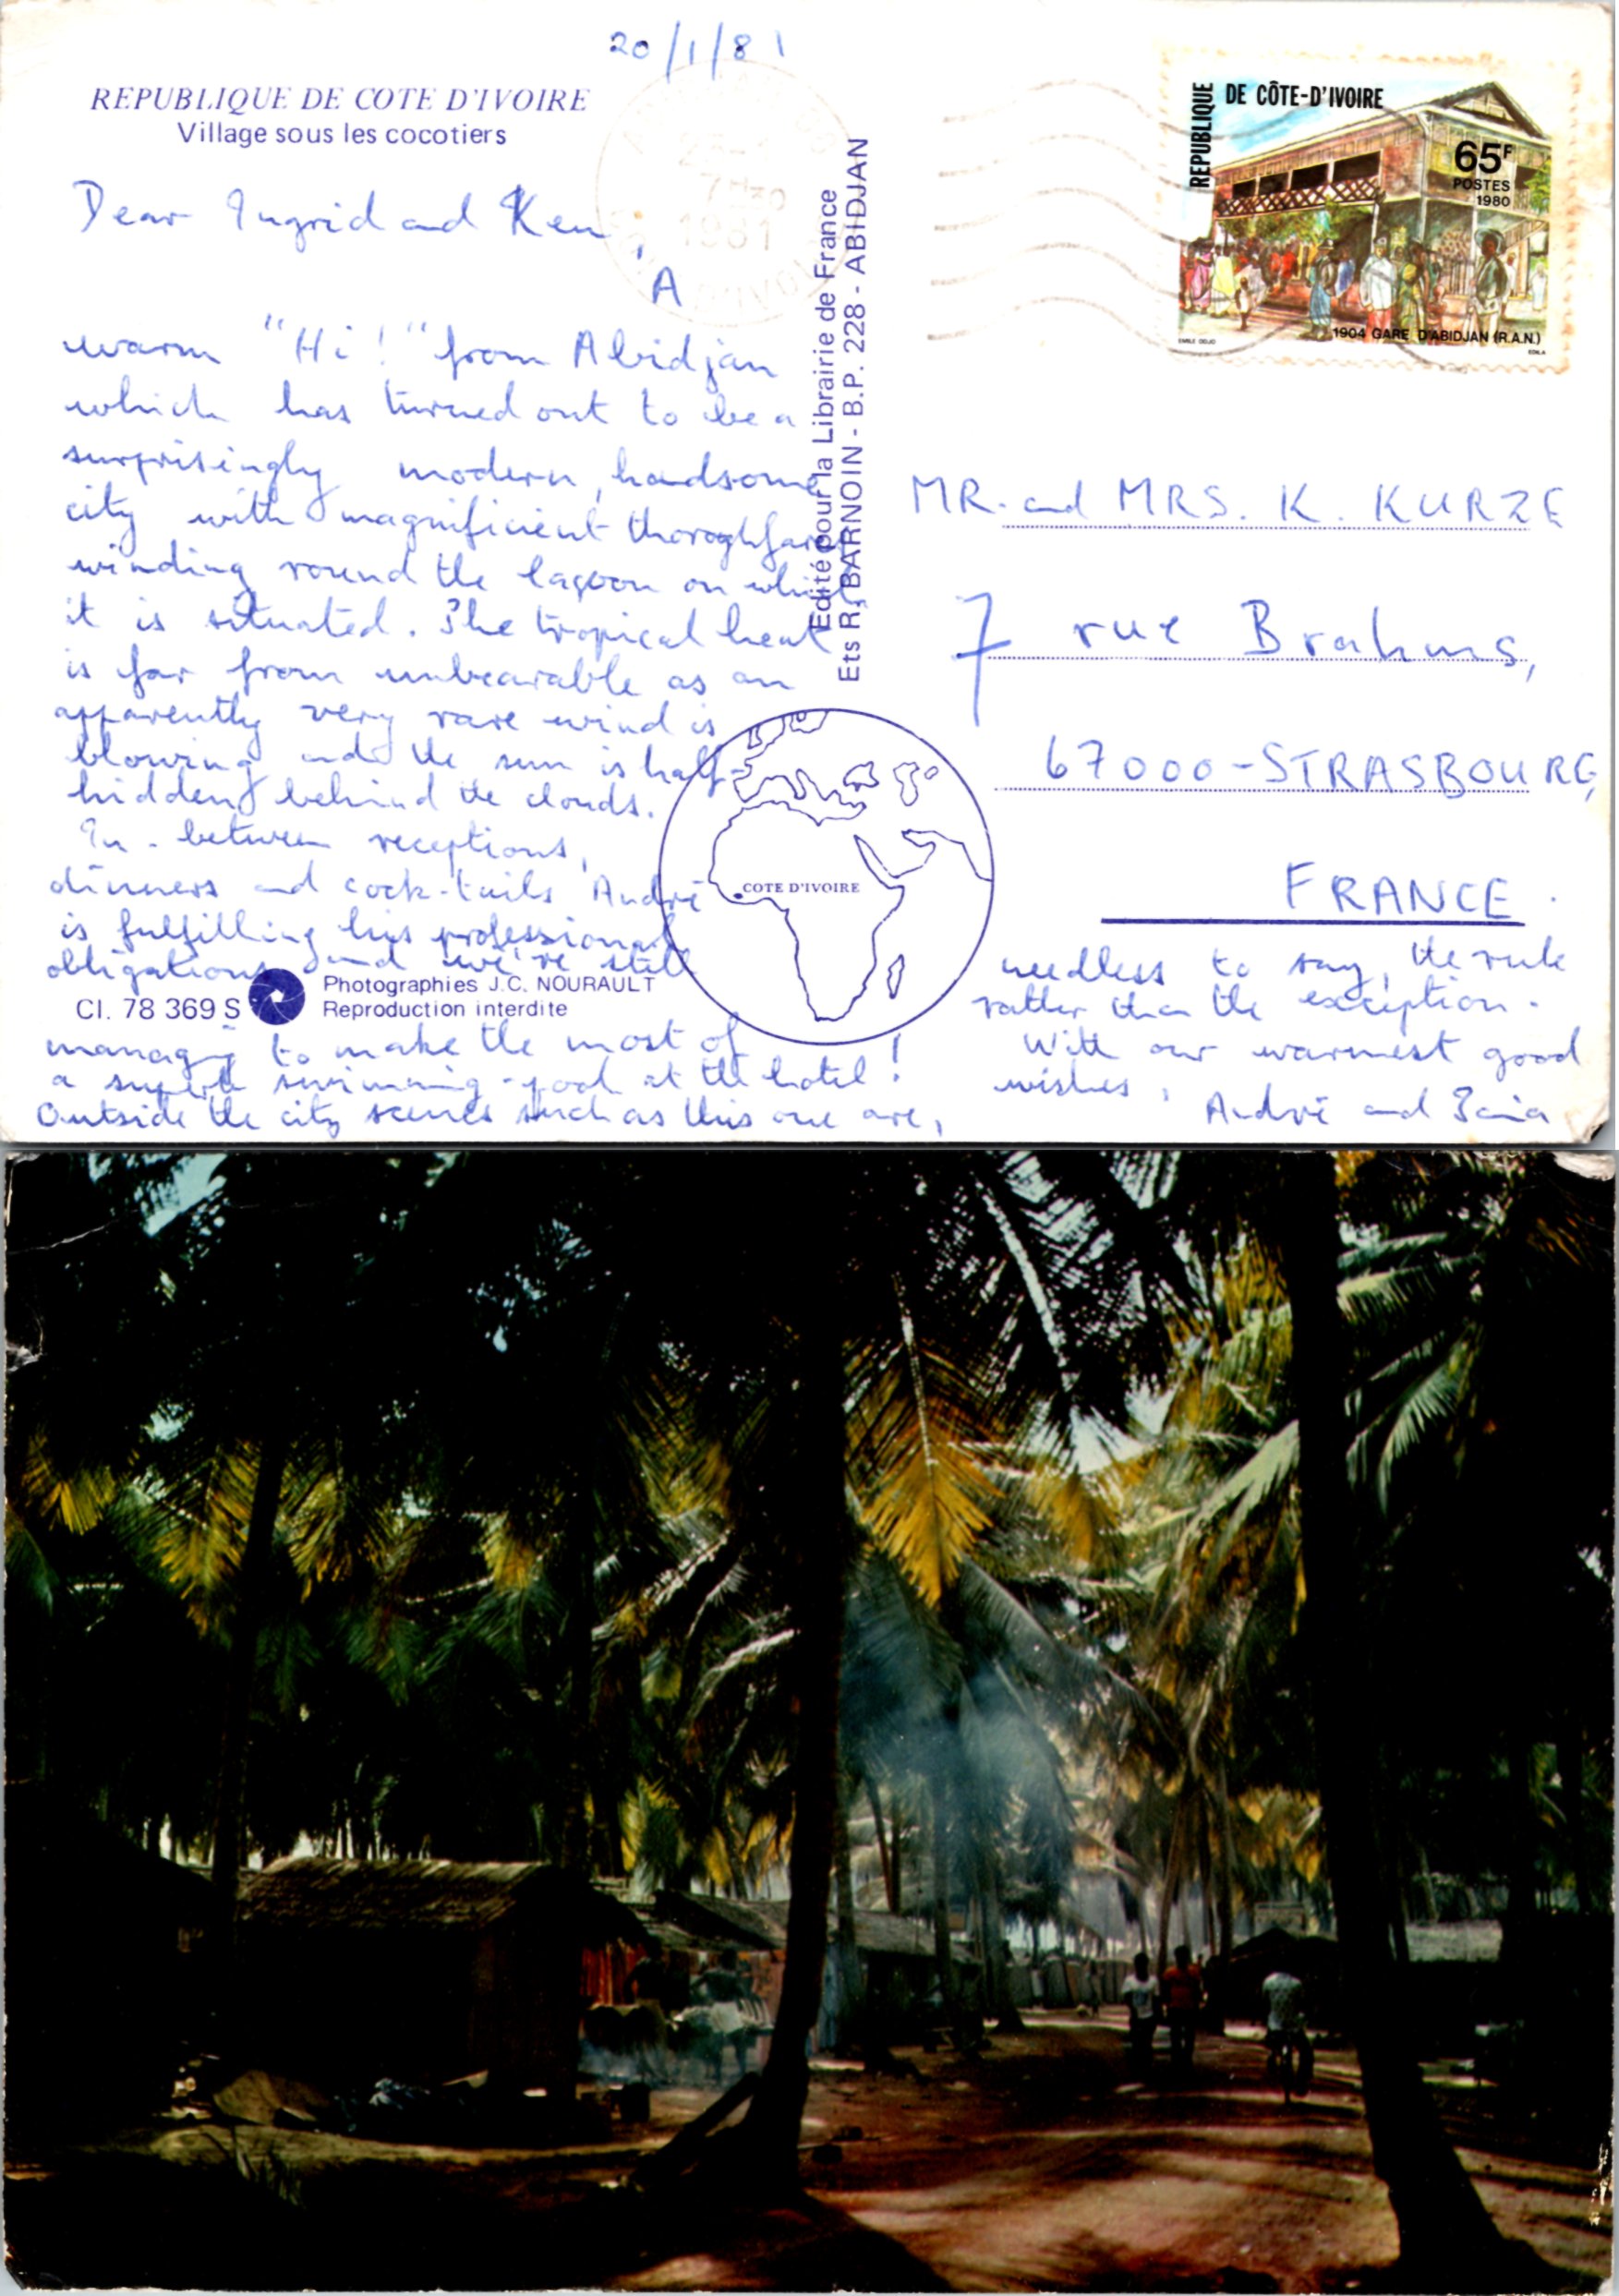 20/1/81
REPUBLIQUE DE COTE D'IVOIRE
Village sous les cocotiers
Dear Ingrid and Ken,
A
warm "Hi!" from Abidjan
which has turned out to be a
surprisingly modern, handsome
city with magnificient thoroghfares
winding round the lagoon on which
it is situated. The tropical heat
is far from unbearable as an
apparently very rare wind is
blowing and the sun is half-
hidden behind the clouds.
In-between receptions,
dinners and cock-tails André
is fulfilling his professional
obligations and we're still
managing to make the most of
a superb swimming-pool at the hotel!
Outside the city scenes such as this one are,
needless to say, the rule
rather than the exception.
With our warmest good
wishes,
André and
CI. 78 369 S
Photographies J.C. NOURAULT
Reproduction interdite
Edité pour la Librairie de France
Ets R. BARNOIN - B.P. 228 - ABIDJAN
COTE D'IVOIRE
1981
REPUBLIQUE DE CÔTE-D'IVOIRE
65F
POSTES
1980
1904 GARE D'ABIDJAN (R.A.N.)
EDILA
MR. and MRS. K. KURZE
7 rue Brahms,
67000-STRASBOURG,
FRANCE